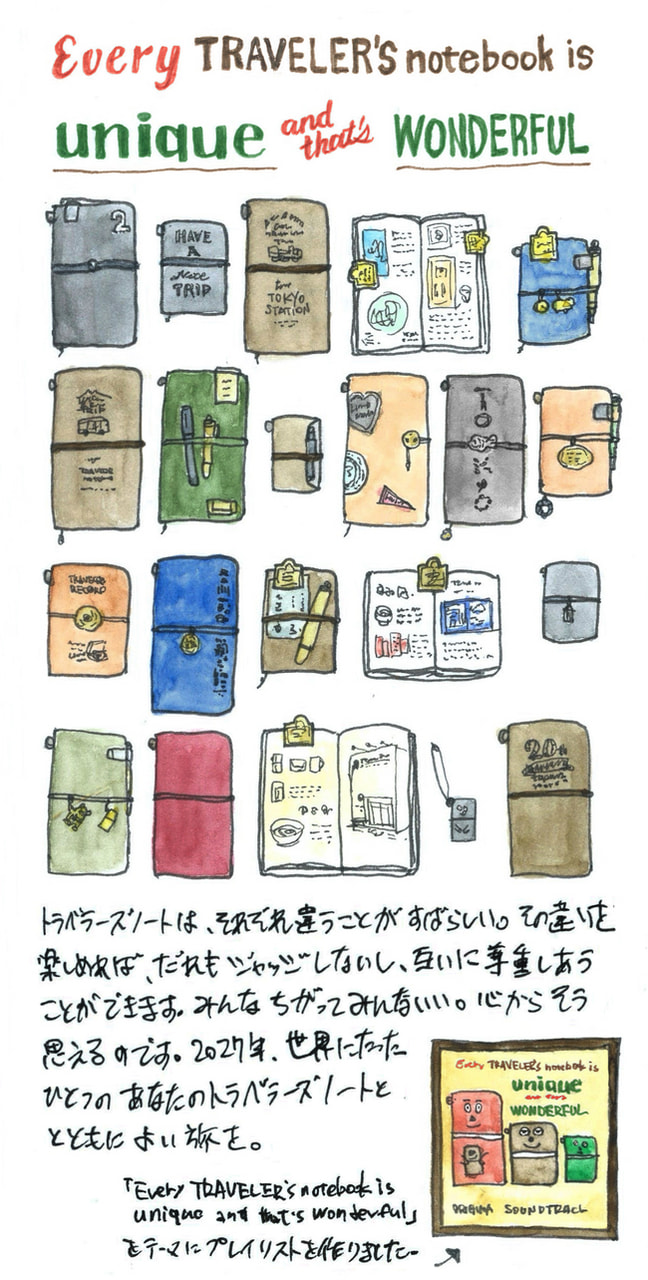 Every TRAVELER'S notebook is
unique and that's WONDERFUL
2
HAVE
A
Nice
TRIP
TOKYO
STATION
TRAVELER'S
notebook
TOKYO
TRAVELER'S
RECORD
20th
トラベラーズノートは、それぞれ違うことがすばらしい。その違いを
楽しめれば、だれもジャッジしないし、互いに尊重しあう
ことができます。みんなちがってみんないい。心からそう
思えるのです。2027年、世界にたった
ひとつのあなたのトラベラーズノートと
ともによい旅を。
Every TRAVELER'S notebook is
unique
and that's
WONDERFUL
ORIGINAL SOUNDTRACK
「Every TRAVELER's notebook is
unique and that's wonderful」
をテーマにプレイリストを作りました。